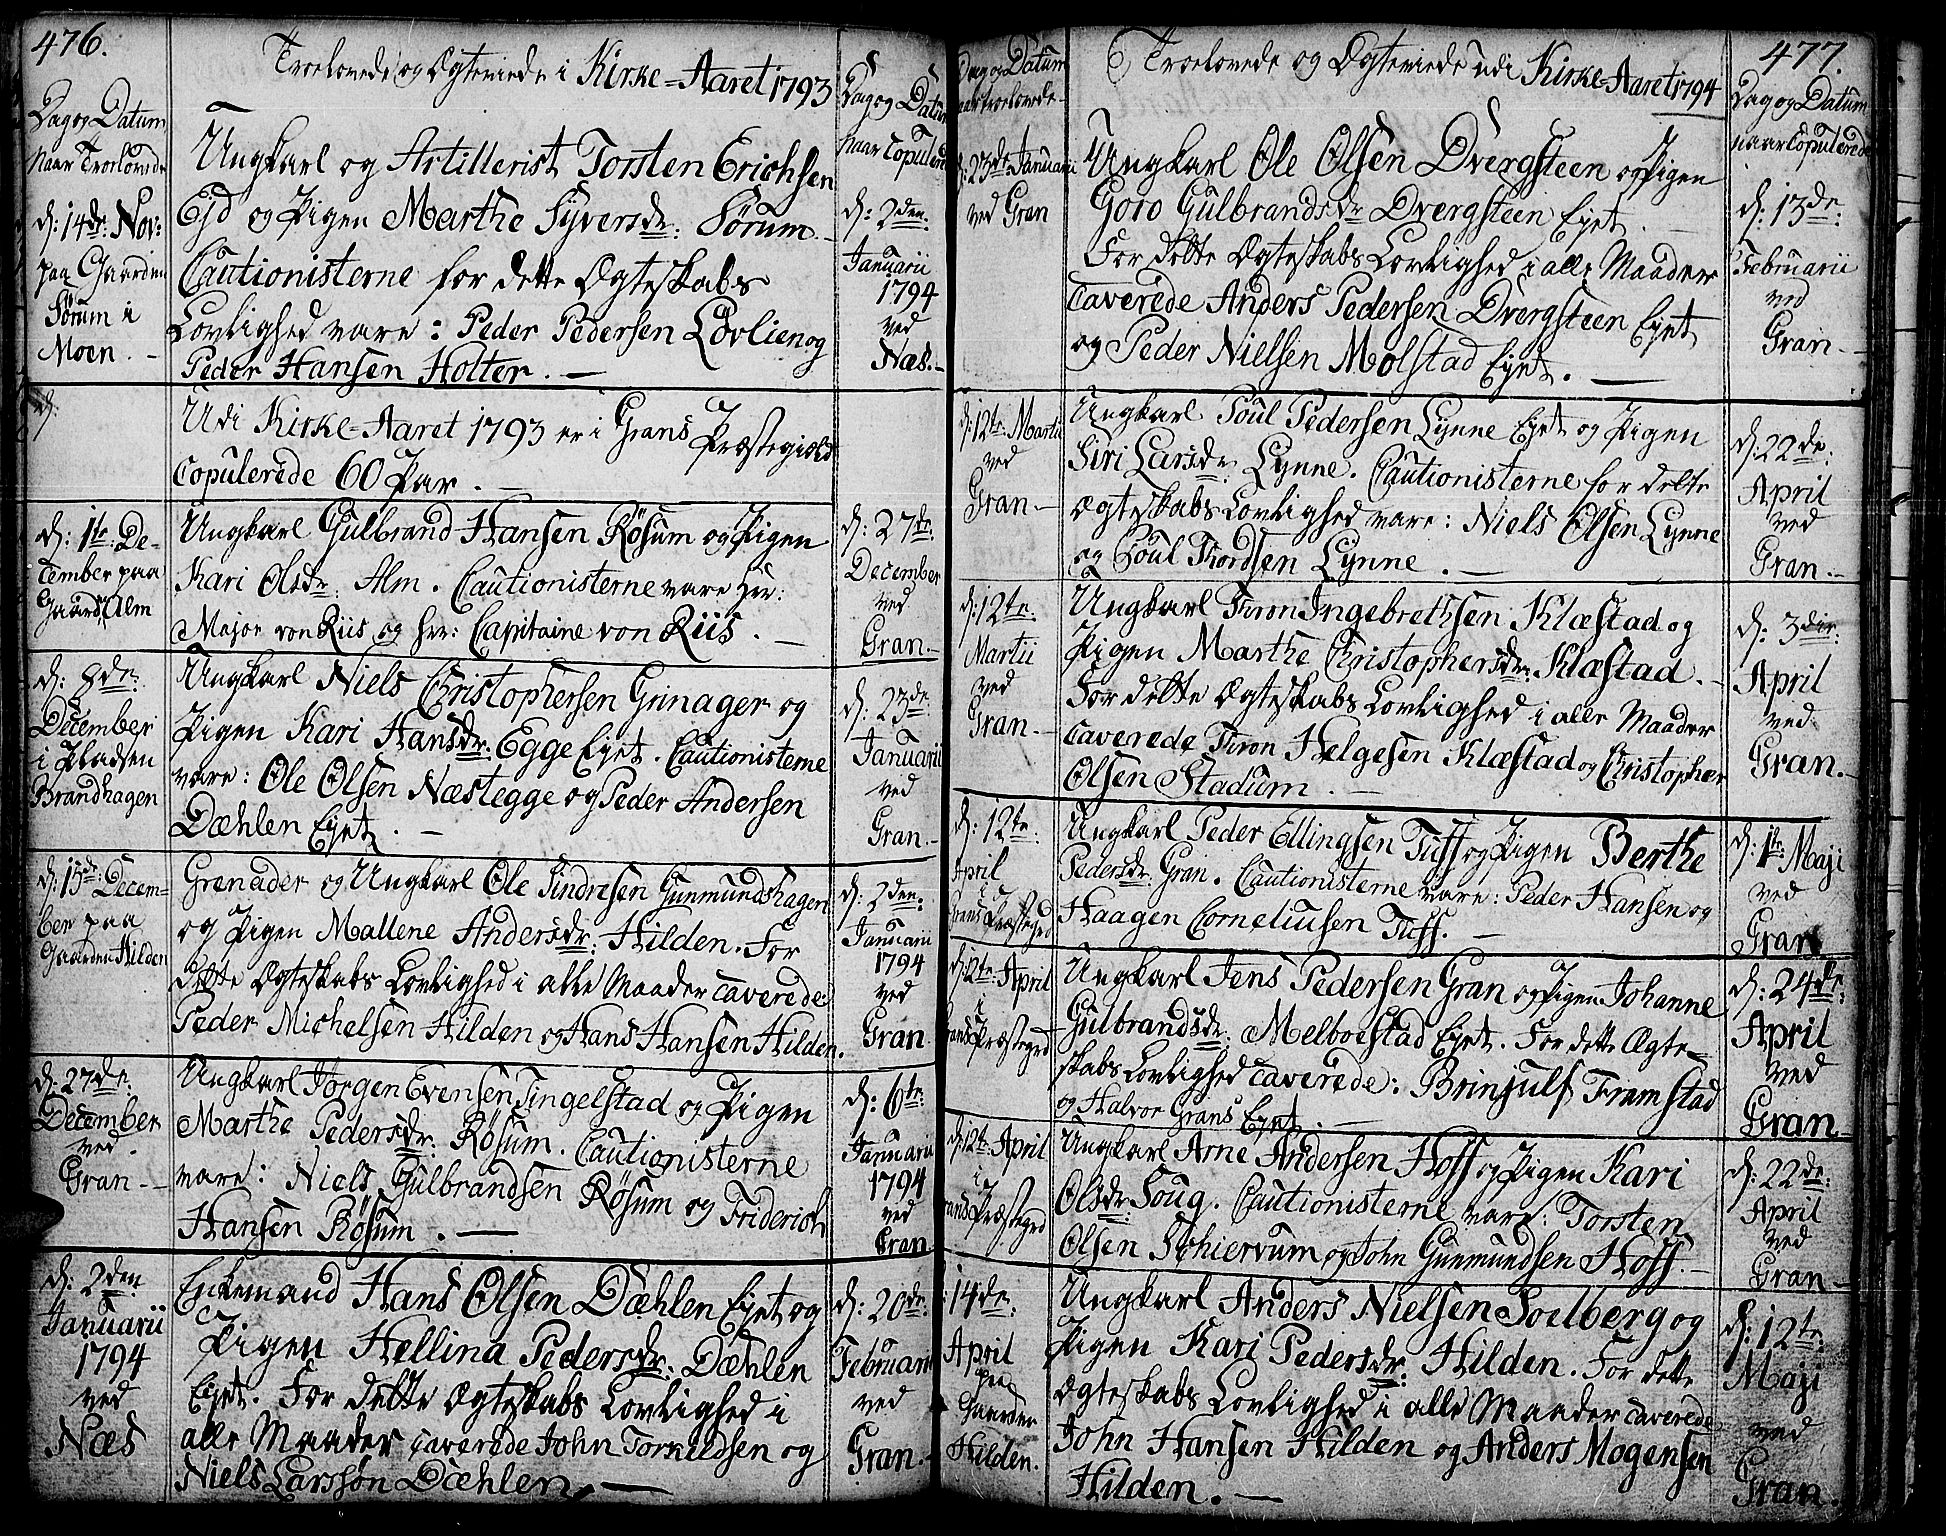 476.
Troelovede og Ægteviede i Kirke=Aaret 1793
Dag og Datum
naar Troelovede
Dag og Datum
naar Copulerede
d: 14de Nov:
paa Gaarden
Sørum i
Moen. -
Ungkarl og Artillerist Torsten Erichsen
Ejd og Pigen Marthe Syversdr: Sørum.
Cautionisterne for dette Ægteskabs
Lovlighed vare: Peder Pedersen Lovlien og
Peder Hansen Holter. -
d: 2den
Januarii
1794
ved
Næs. -
d:
Udi Kirke=Aaret 1793 er i Grans Præstegield
Copulerede 60 Par. -
d: 1te De-
cember paa
Gaard: Alm
Ungkarl Gulbrand Hansen Røsum og Pigen
Kari Olsdr: Alm. Cautionisterne vare Hr:
Major von Riis og Hr: Capitaine von Riis. -
d: 27de
December
ved
Gran. -
d: 8de
December
i Pladsen
Brandhagen
Ungkarl Niels Christophersen Grinager og
Pigen Kari Hansdr: Egge Ejet. Cautionisterne
vare: Ole Olsen Næstegge og Peder Andersen
Dæhlen Ejet. -
d: 23de
Januarii
ved
Gran. -
d: 15de Decem-
ber paa
Gaarden Hilden
Grenader og Ungkarl Ole Sindresen Gunmundshagen
og Pigen Mallene Andersdr: Hilden. For
dette Ægteskabs Lovlighed i alle Maader caverede:
Peder Michelsen Hilden og Hans Hansen Hilden.
d: 2den
Januarii
1794
ved
Gran
d: 27de
December
ved
Gran -
Ungkarl Jørgen Evensen Tingelstad og Pigen
Marthe Pedersdr: Røsum. Cautionisterne
vare: Niels Gulbrandsen Røsum og Friderich
Hansen Røsum. -
d: 6te
Januarii
1794
ved
Gran
d: 2den
Januarii
1794
ved
Næs
Enkemand Hans Olsen Dæhlen Ejet og
Pigen Hellina Pedersdr: Dæhlen
Ejet. For dette Ægteskabs Lovlighed i
alle Maader caverede John Torkildsen og
Niels Larssøn Dæhlen. -
d: 20de
Februarii
ved
Gran. -
477.
Troelovede og Ægteviede udi Kirke=Aaret 1794
Dag og Datum
naar Troelovede
Dag og Datum
naar Copulerede
d: 23de Januarii
ved Gran
Ungkarl Ole Olsen Dvergsteen og Pigen
Goro Gulbrandsdr: Dvergsteen Ejet. -
For dette Ægteskabs Lovlighed i alle Maader
caverede Anders Pedersen Dvergsteen Ejet
og Peder Nielsen Molstad Ejet. -
d: 13de
Februarii
ved
Gran -
d: 12te Martii
ved
Gran -
Ungkarl Poul Pedersen Lynne Ejet og Pigen
Siri Larsdr: Lynne. Cautionisterne for dette
Ægteskabs Lovlighed vare: Niels Olsen Lynne
og Poul Thordsen Lynne. -
d: 22de
April
ved
Gran. -
d: 12te
Martii
ved
Gran -
Ungkarl Tron Ingebrethsen Klæstad og
Pigen Marthe Christophersdr: Klæstad. -
For dette Ægteskabs Lovlighed i alle Maader
caverede Tron Helgesen Klæstad og Christopher
Olsen Stadum. -
d: 3die
April
ved
Gran. -
d: 12te
April
i
Grans Præstegrd
Ungkarl Peder Ellingsen Tuff og Pigen Berthe
Pedersdr: Gran. Cautionisterne vare: Peder Hansen og
Haagen Corneliusen Tuff. -
d: 1te Maji
ved
Gran
d: 12te April
i
Grans Præstegrd
Ungkarl Jens Pedersen Gran og Pigen Johanne
Gulbrandsdr: Melboestad Ejet. For dette Ægte-
skabs Lovlighed caverede: Brinjulf Framstad
og Halvor Grans Ejet. -
d: 24de
April
ved
Gran -
d: 12te April
i
Grans Præstegrd
Ungkarl Arne Andersen Hoff og Pigen Kari
Olsdr: Soug. Cautionisterne vare: Torsten
Olsen Schiervum og John Gunmundsen Hoff. -
d: 22de
April
ved
Gran -
14de
April
paa
Gaarden
Hilden.
Ungkarl Anders Nielsen Soelberg og
Pigen Kari Pedersdr: Hilden. For dette
Ægteskabs Lovlighed i alle Maader caverede
John Hansen Hilden og Anders Mogensen
Hilden. -
d: 12te
Maji
ved
Gran.